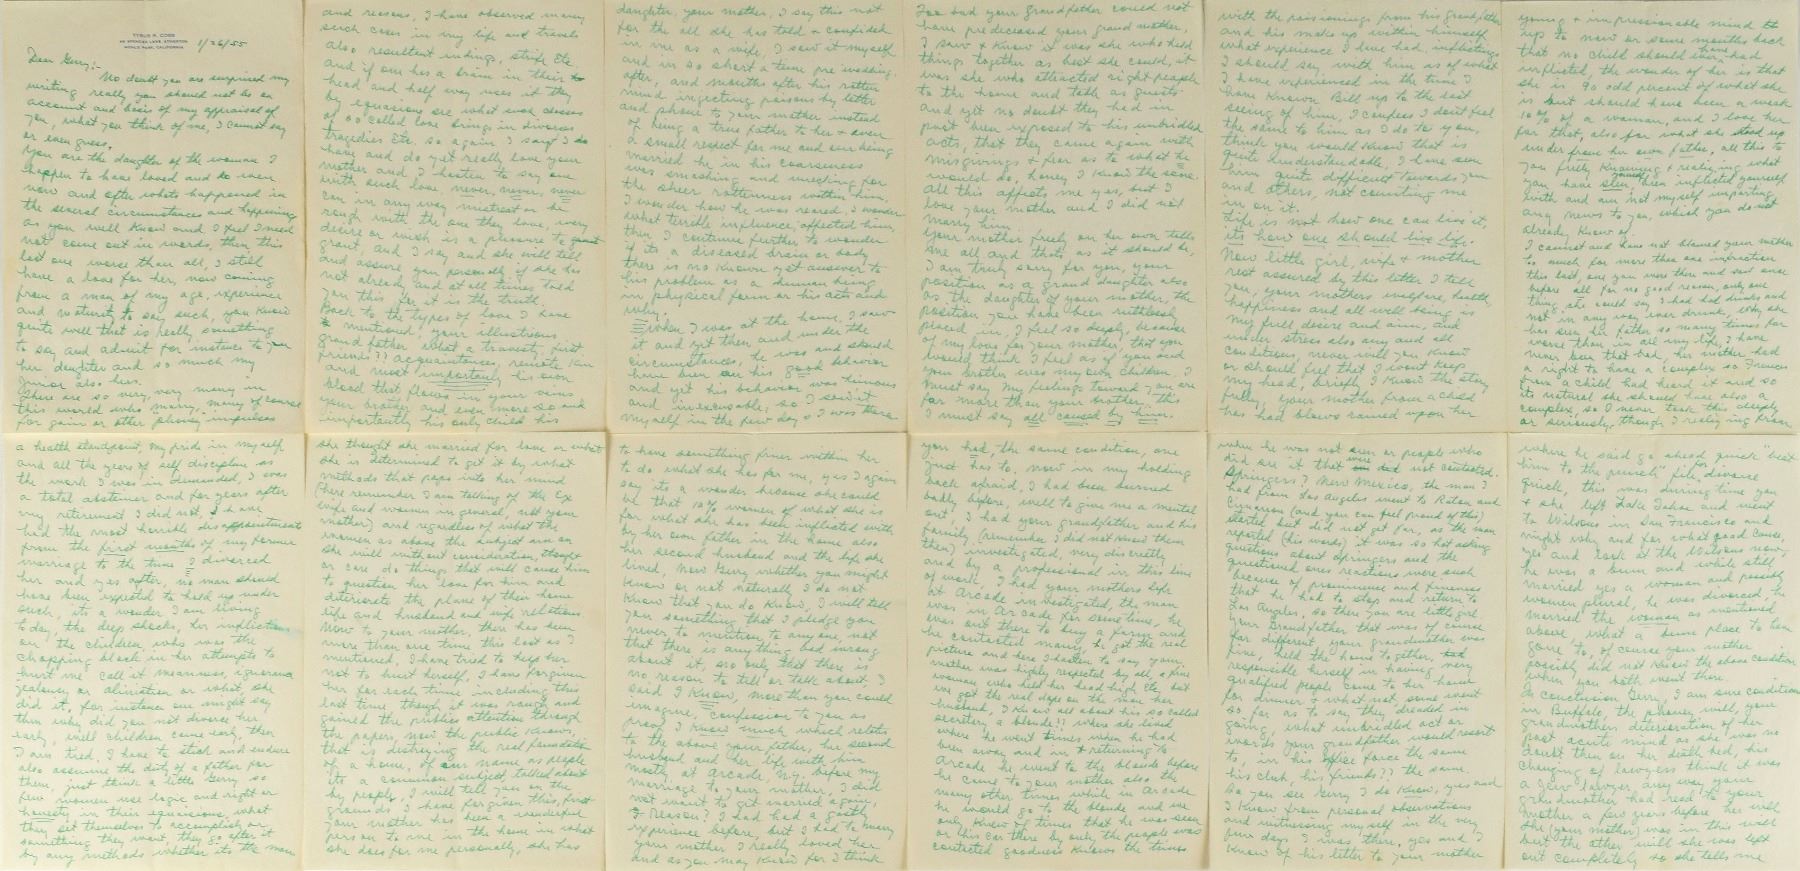 TYRUS R. COBB
48 SPENCER LANE, ATHERTON
MENLO PARK, CALIFORNIA
1/26/55
Dear Gerry:-
No doubt you are surprised my
writing really you should not be on
account and basis of my appraisal of
you, what you think of me, I cannot say
or even guess.
You are the daughter of the woman I
happen to have loved and do even
now and after whats happened in
the several circumstances and happenings
as you well know and I feel I need
not come out in words, then this
last one worse than all, I still
have a love for her, now coming
from a man of my age, experience
and maturity to say such, you know
quite well that is really something
to say and admit for instance to you
her daughter and so much my
junior also hers.
There are so very, very many in
this world who marry, many of course
for gain or other phoney impulses
and reasons, I have observed many
such cases in my life and travels
also resultant endings, strife Etc.
and if one has a brain in their
head and half way uses it they
by equasion see what such classes
of so called love brings in divorces
tragedies Etc. so again I say I do
have and do yet really love your
mother and I hasten to say one
with such love, never, never, never
can in any way mistreat or be
rough with the one they love, every
desire or wish is a pleasure to grant
grant, and I say and she will tell
and assure you personally if she has
not already and at all times told
you this for it is the truth.
Back to the types of love I have
mentioned, your illustrious
grand father, what a travesty, first
friends?? acquaintance, remote kin
and most importantly his own
blood that flows in your veins
your brother and even more so and
importantly his only child his
daughter, your mother, I say this not
for the all she has told & confided
in me as a wife, I saw it myself
and in so short a time pre wedding,
after, and months after his rotten
mind injecting poisons by letter
and phone to your mother instead
of being a true father to her & even
a small respect for me and our being
married he in his coarseness
was smashing and injecting for
the sheer rottenness within him.
I wonder how he was reared, I wonder
what terrible influence affected him,
then I continue further to wonder
if its a diseased brain or body
there is no known yet answer to
his problem as a human being
in physical form or his acts and
why.
When I was at the home, I saw
it and yet then and under the
circumstances, he was and should
have been on his good behavior
and yet his behavior was heinous
and inexcusable, so I saw it
myself in the few days I was there
Too bad your grandfather could not
have predeceased your grand mother,
I saw & know it was she who held
things together as best she could, it
was she who attracted right people
to the home and table as guests
and yet no doubt they had in
past been exposed to his unbridled
acts, that they came again with
misgivings & fear as to what he
would do, honey I know the same.
All this affects me yes, but I
love your mother and I did not
marry him.
Your mother freely on her own tells
me all and thats as it should be,
I am truly sorry for you, your
position as a grand daughter also
as the daughter of your mother, the
position you have been ruthlessly
placed in, I feel so deeply, because
of my love for your mother, that you
would think I feel as if you and
your brother was my own children, I
must say my feelings toward you are
far more than your brother, this
I must say all caused by him.
with the poisonings from his grandfather
and his make up within himself,
what experience I have had, inflictings
I should say with him as of what
I have experienced in the time I
have known Bill up to the last
seeing of him, I confess I dont feel
the same to him as I do to you,
think you would know that is
quite understandable, I have seen
him quite difficult towards you
and others, not counting me
in on it.
Life is not how one can live it,
its how one should live life.
Now little girl, wife & mother
rest assured by this letter I tell
you, your mothers welfare, health,
happiness and all well being is
my full desire and aim, and
under stress also any and all
conditions, never will you know
or should feel that I wont keep
my head, briefly I know the story
fully, your mother from a child
has had blows rained upon her
young & impressionable mind th
up to now or some months back
that no child should have had
inflicted, the wonder of her is that
she is 90 odd percent of what she
is but should have been a weak
10% of a woman, and I love her
for that, also for what she stood up
under from her own father, all this to
you fully knowing & realizing what
you have seen, been inflicted yourself
with and am not myself imparting
any news to you, which you do not
already know of.
I cannot and have not blamed your mother
to much for more than one infraction
this last, one you were there and said once
before all for no good reason, only one
thing she could say I had had drinks and
not in any way over drunk, why she
has seen her father so many times far
worse than in all my life, I have
never been that bad, her mother had
a right to have a complex so Frances
from a child had heard it and so
its natural she should have also a
complex, so I never took this deeply
or seriously, though I realizing from
a health standpoint, my pride in myself
and all the years of self discipline as
the work I was in demanded, I was
a total abstainer and for years after
my retirement I did not, I have
had the most horrible disappointments
from the first months of my former
marriage to the time I divorced
her and yes after, no man should
have been expected to hold up under
such, its a wonder I am living
today, the deep shocks, her infliction
on the children who was the
chopping block in her attempts to
hurt me call it meanness, ignorance
jealousy or alination or what, she
did it, for instance one might say
then why did you not divorce her
early, well children came early, then
I am tied, I have to stick and endure
also assume the duty of a father for
them, just think a little Gerry so
few women use logic and right or
honesty in their equasions, what
they set themselves to accomplish or
something they want, they go after it
by any methods whether its the man
she thought she married for love or what
she is determined to get it by what
methods that pops into her mind
(here remember I am talking of the Ex
wife and women in general, not your
mother) and regardless of what the
women as above the subject am on
she will without consideration, thought
or care do things that will cause him
to question her love for him and
deteriorate the plane of their home
life and husband and wife relations.
Now to your mother, there has been
more than one time this last as I
mentioned, I have tried to help her
not to hurt herself, I have forgiven
her for each time including this
last time, though it was rough and
gained the publics attention through
the papers, now the public knows,
that is distroying the real foundation
of a home, of our name as people
its a common subject talked about
by people, I will tell you on the
grounds I have forgiven this, first
your mother has been a wonderful
person to me in the home in what
she does for me personally, she has
to have something finer within her
to do what she has for me, yes I again
say its a wonder because she could
be that 10% women of what she is
for what she has been inflicted with
by her own father in the home also
her second husband and the life she
lived, now Gerry whether you might
know or not naturally I do not
know that you do know, I will tell
you something that I pledge you
never, to mention, to anyone, not
that there is anything bad wrong
about it, so only that there is
no reason to tell or talk about. I
said I know, more than you could
imagine, confession to you as
proof I know much which relates
to the above your father, her second
husband and her life with him
mostly at Arcade, N.Y. before my
marriage to your mother, I did
not want to get married again,
Reason? I had had a ghastly
experience before, but I had to marry
your mother I really loved her
and as you may know for I think
you had, the same condition, one
just has to. now in my holding
back afraid, I had been burned
badly before, well to give me a mental
out, I had your grandfather and his
family (remember I did not know them
then) investigated, very discretly
and by a professional in this line
of work, I had your mothers life
at Arcade investigated, the man
was in Arcade for some time, he
was out there to buy a farm and
he contacted many, he got the real
picture and here I hasten to say your
mother was highly respected by all, a fine
woman who held her head high Etc, but
we got the real dope on the man her
husband, I know all about his so called
secretary a blonde!! where she lived
where he went times when he had
been away and in & returning to
Arcade he went to the blonde before
he came to your mother also the
many other times while in Arcade
he would go to the blonde and we
only knew of times that he was seen
or his car there by only the people was
contacted goodness knows the times
when he was not seen or people who
did see it that were not contacted.
Springers? New Mexico, the man I
had from Los Angeles went to Raton and
Cimarron (and you can feel proud of this)
started but did not get far, as the man
reported (his words) it was so hot asking
questions about Springers and the
questioned ones reactions were such
because of prominence and fineness
that he had to stop and return to
Los Angeles, so then you are little girl.
Your Grandfather that was of course
far different, your grandmother was
fine, held the home together,
responsible herself in having very
qualified people come to her home
for dinner & what not, some went
so far as to say they dreaded in
going, what unbridled act or
words your grandfather would resort
to, in his office force the same
his club, his friends?? the same.
So you see Gerry I do know, yes and
I know from personal observations
and witnessing myself in the very
few days I was there, yes and I
know of his letter to your mother
where he said go ahead quick "beat
him to the punch" file for divorce
quick, this was during time you
& she left Lake Tahoe and went
to Wilsons in San Francisco and
right why and for what good cause,
yes and look at the Wilsons now,
he was a bum and while still
married yes a woman and possibly
women plural, he was divorced, he
married the woman as mentioned
above, what a fine place to have
gone to, of course your mother
possibly did not know the above condition
when you both went there.
In conclusion Gerry, I am sure conditions
in Buffalo, the phoney will, your
grandmothers deterioration of her
past acute mind as she was no
doubt then on her death bed, his
changing of lawyers think it was
a Jew lawyer, any way your
grandmother had read to your
mother a few years before her will
she (your mother) was in this will
but the other will she was left
out completely so she tells me